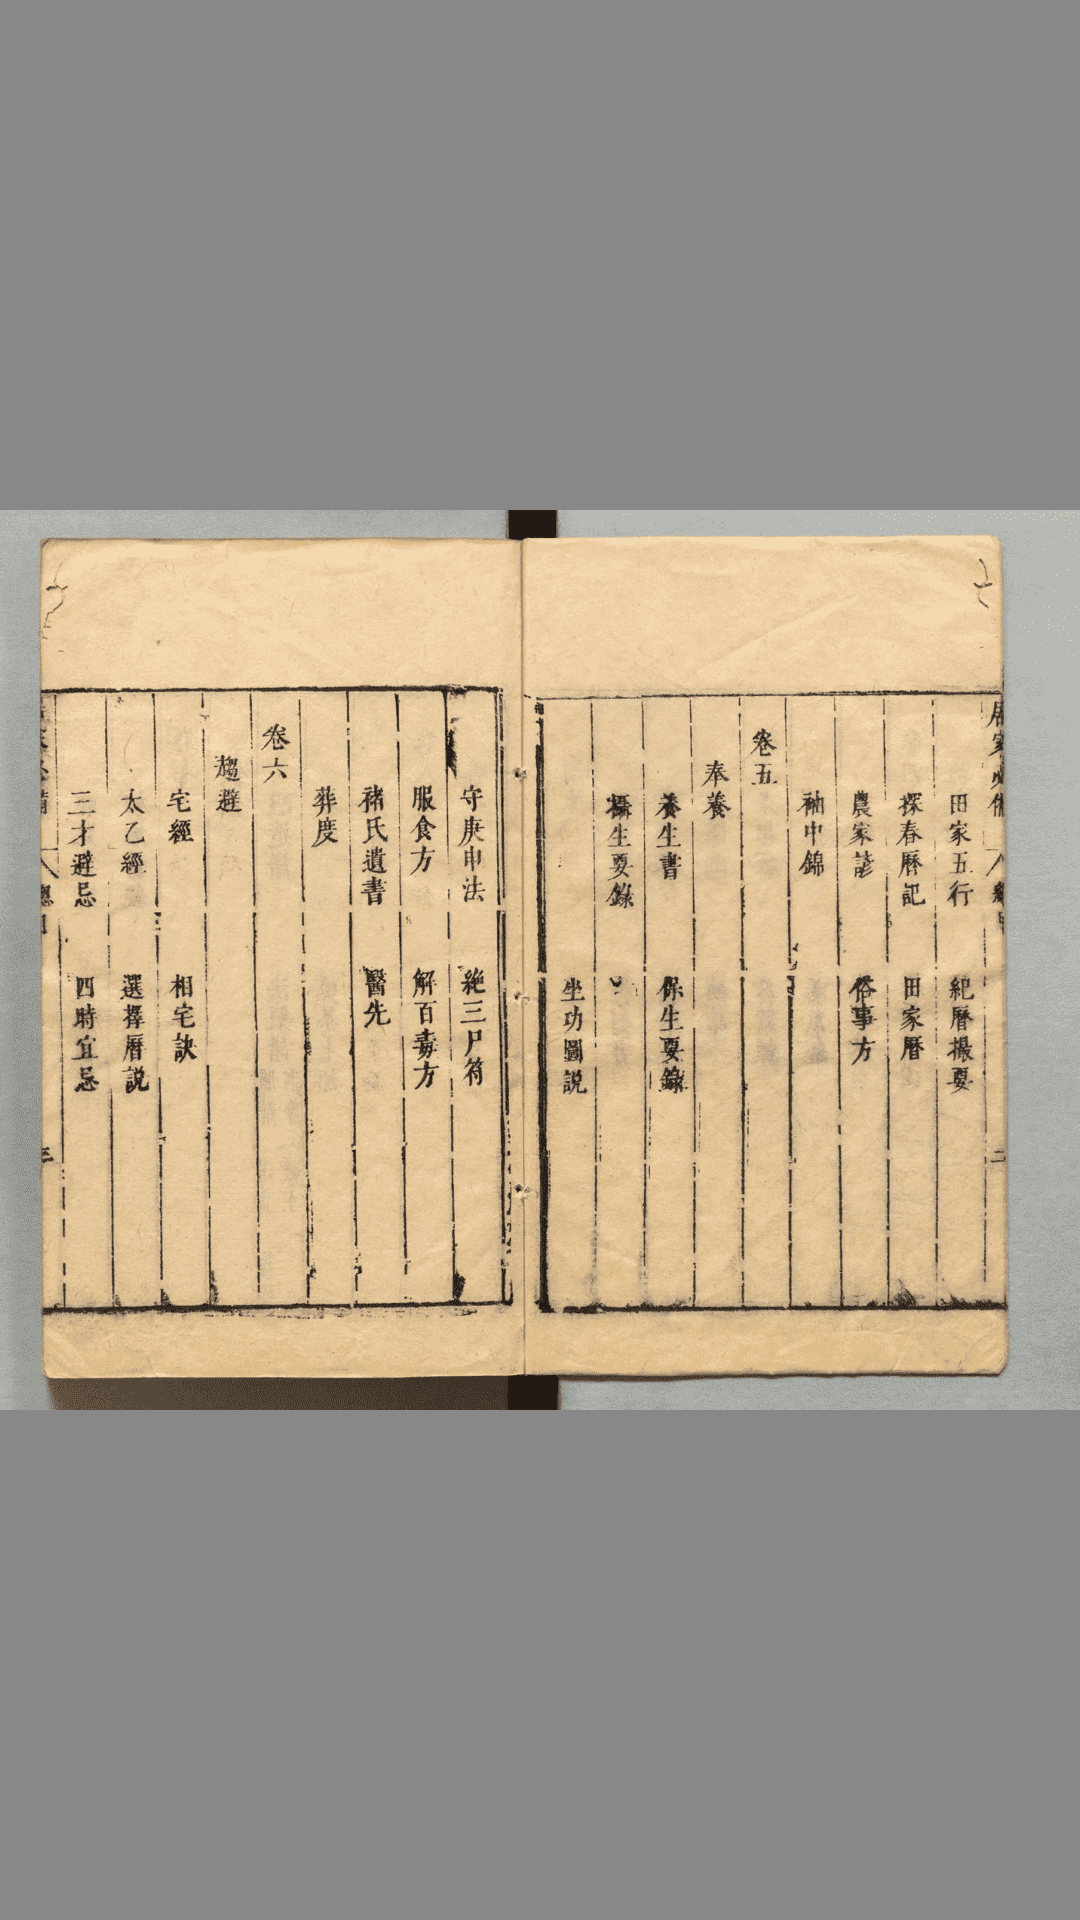 田家五行　紀曆撮要
探春曆記　田家曆
農家諺　俗事方
袖中錦
卷五
奉養
養生書　保生要錄
攝生要錄
坐功圖説
守庚申法　絶三尸符
服食方　解百毒方
褚氏遺書　醫先
葬度
卷六
趨避
宅經　相宅訣
太乙經　選擇曆説
三才避忌　四時宜忌
三